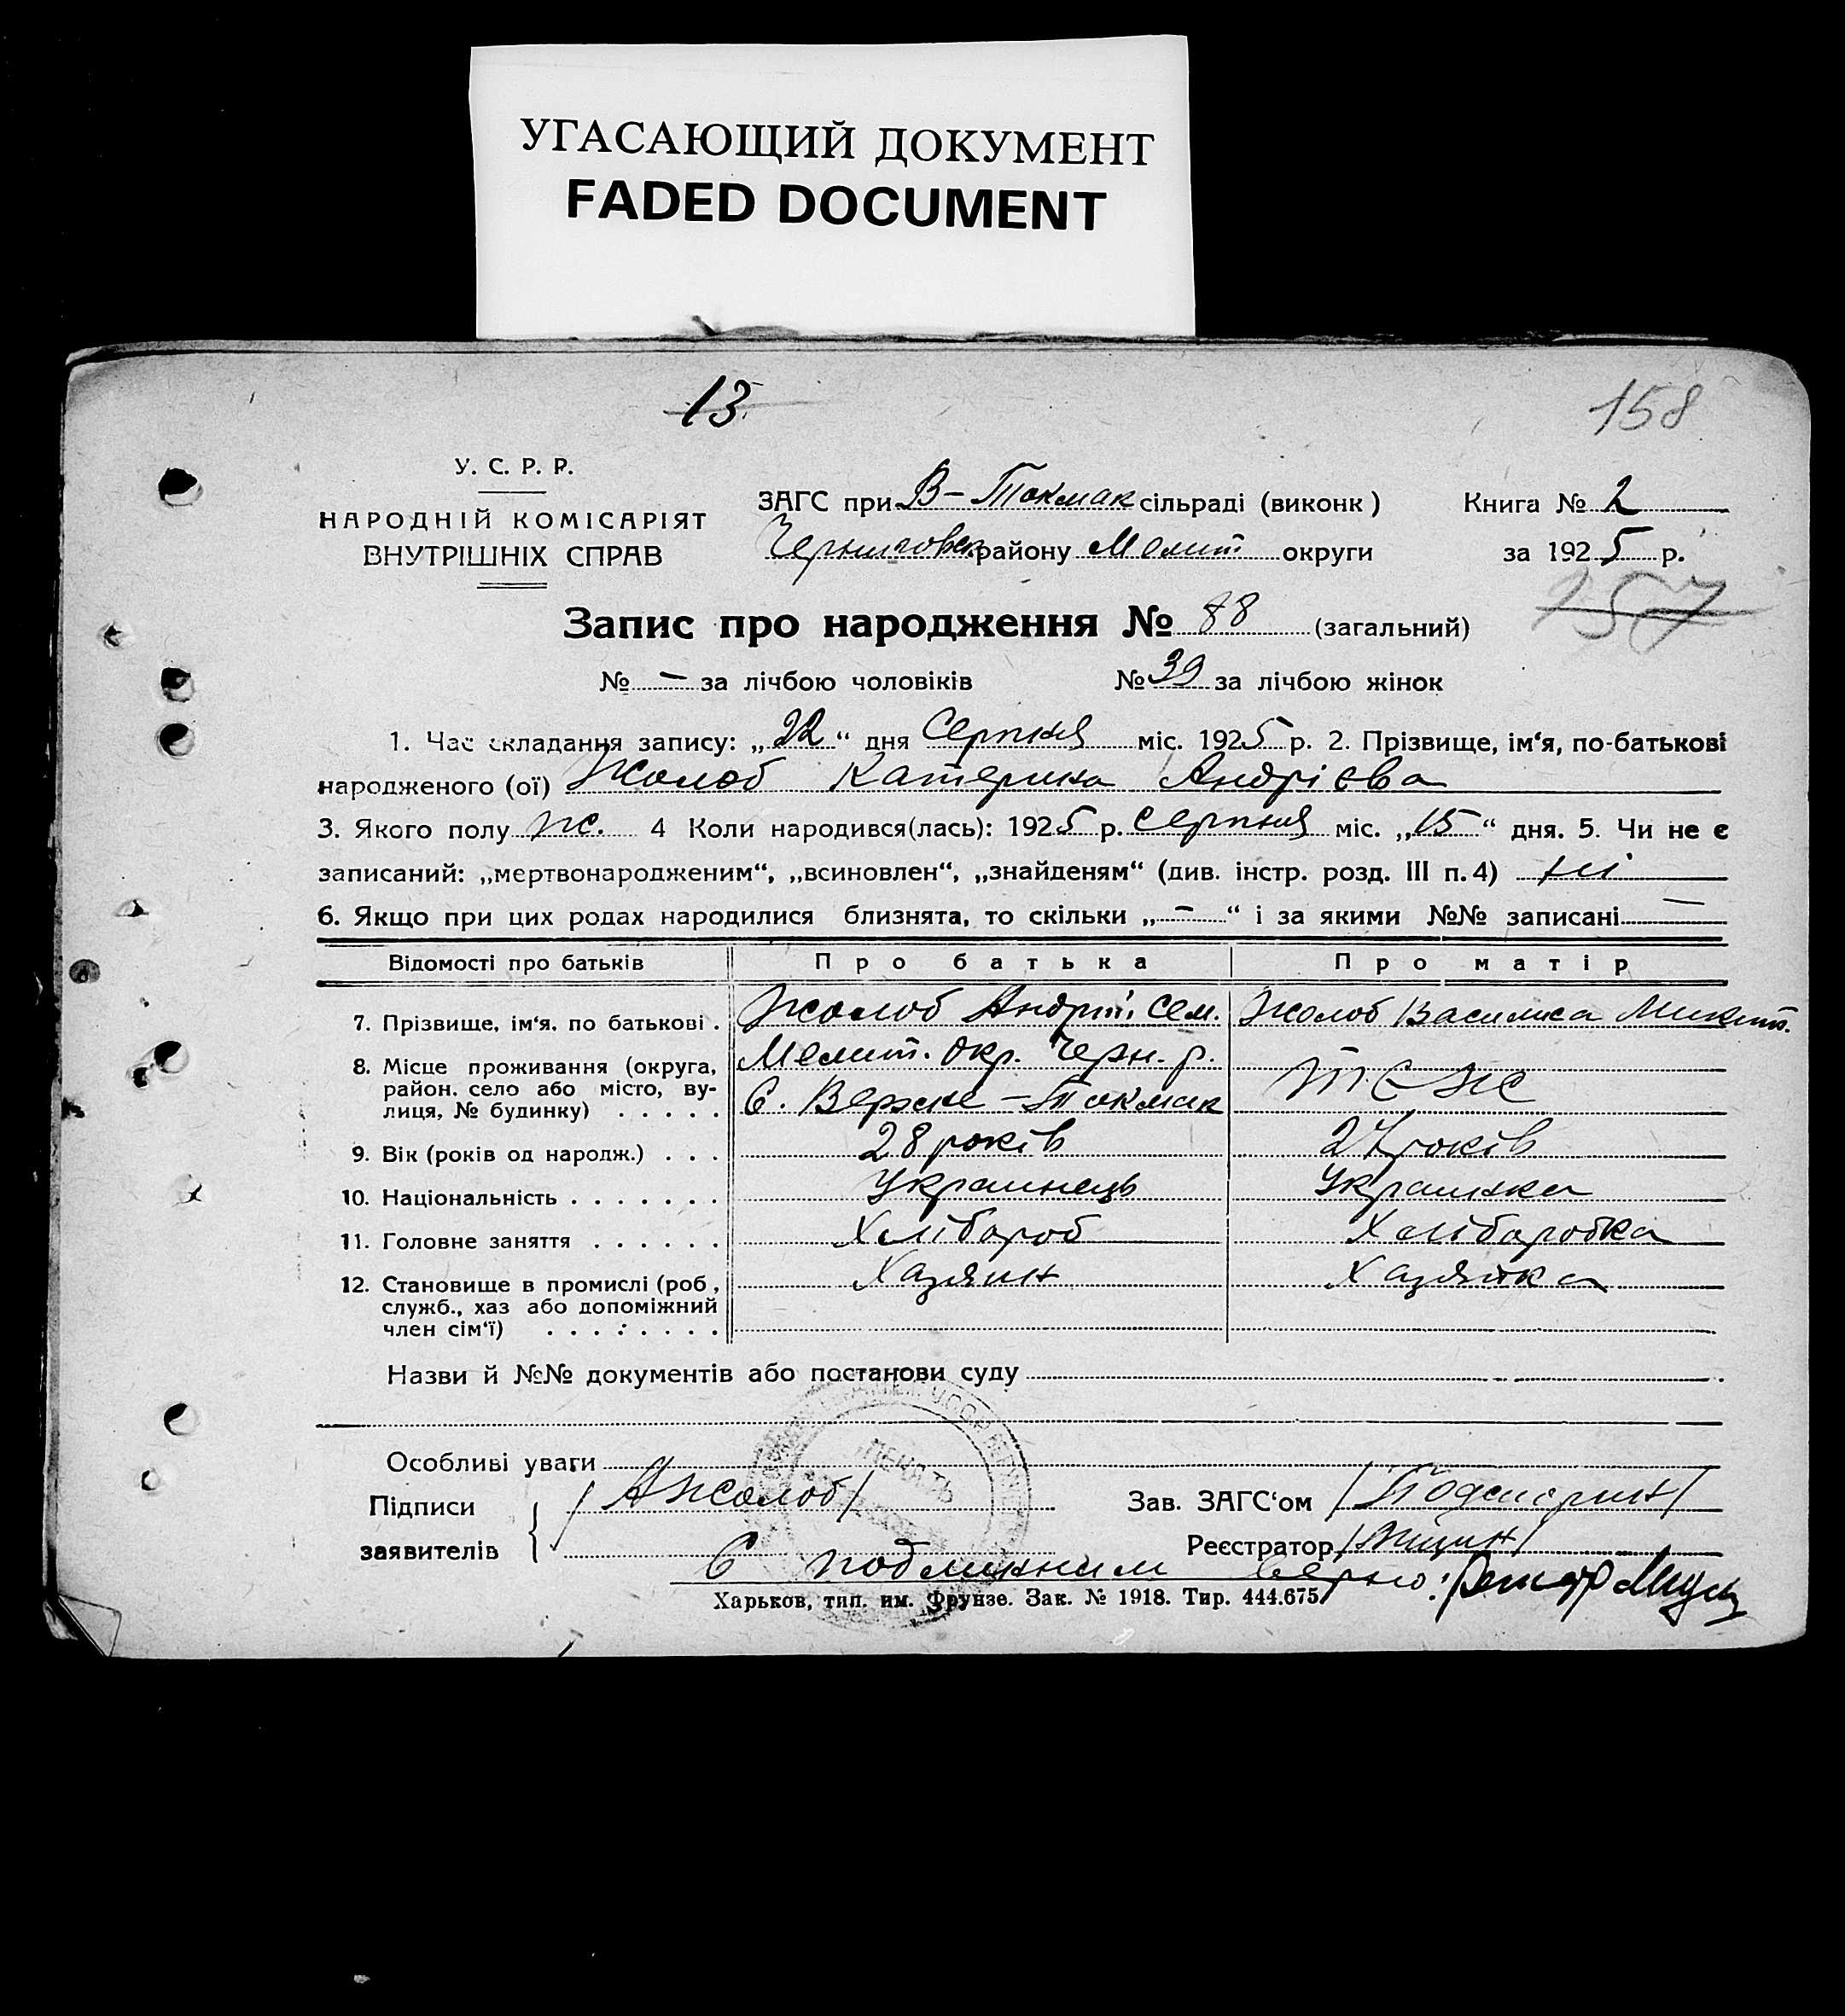 УГАСАЮЩИЙ ДОКУМЕНТ
FADED DOCUMENT
13
158
У. С. Р. Р.
НАРОДНІЙ КОМІСАРІЯТ
ВНУТРІШНІХ СПРАВ
ЗАГС при В-Токмак сільраді (виконк)
Черниговск району Мелит округи
Книга № 2
за 1925 р.
157
Запис про народження № 88 (загальний)
№ — за лічбою чоловіків № 39 за лічбою жінок
1. Час складання запису: „22“ дня Серпня міс. 1925 р. 2. Прізвище, ім‘я, по-батькові
народженого (ої) Жолоб Катерина Андрієва
3. Якого полу ж. 4 Коли народився(лась): 1925 р. Серпня міс. „15“ дня. 5. Чи не є
записаний: „мертвонародженим“, „всиновлен“, „знайденям“ (див. інстр. розд. III п. 4) ні
6. Якщо при цих родах народилися близнята, то скільки „—“ і за якими №№ записані —
Відомості про батьків Про батька Про матір
7. Прізвище, ім‘я, по батькові . Жолоб Андрій Сем. Жолоб Василиса Микит.
8. Місце проживання (округа, район, село або місто, вулиця, № будинку) . . . . . Мелит. окр. Черн. р.
С. Верхне-Токмак теже
9. Вік (років од народж.) . . . 28 років 27 років
10. Національність . . . . . . . Украинець Украинка
11. Головне заняття . . . . . . Хлібороб Хліборобка
12. Становище в промислі (роб, служб., хаз або допоміжний член сім‘ї) . . . . . . . . Хазяин Хазяйка
Назви й №№ документів або постанови суду
Особливі уваги
Підписи
заявителів
/ АЖолоб /
Зав. ЗАГС‘ом
Реєстратор
С подлинним верно:
Харьков, тип. им. Фрунзе. Зак. № 1918. Тир. 444.675
ПЕЧАТЬ